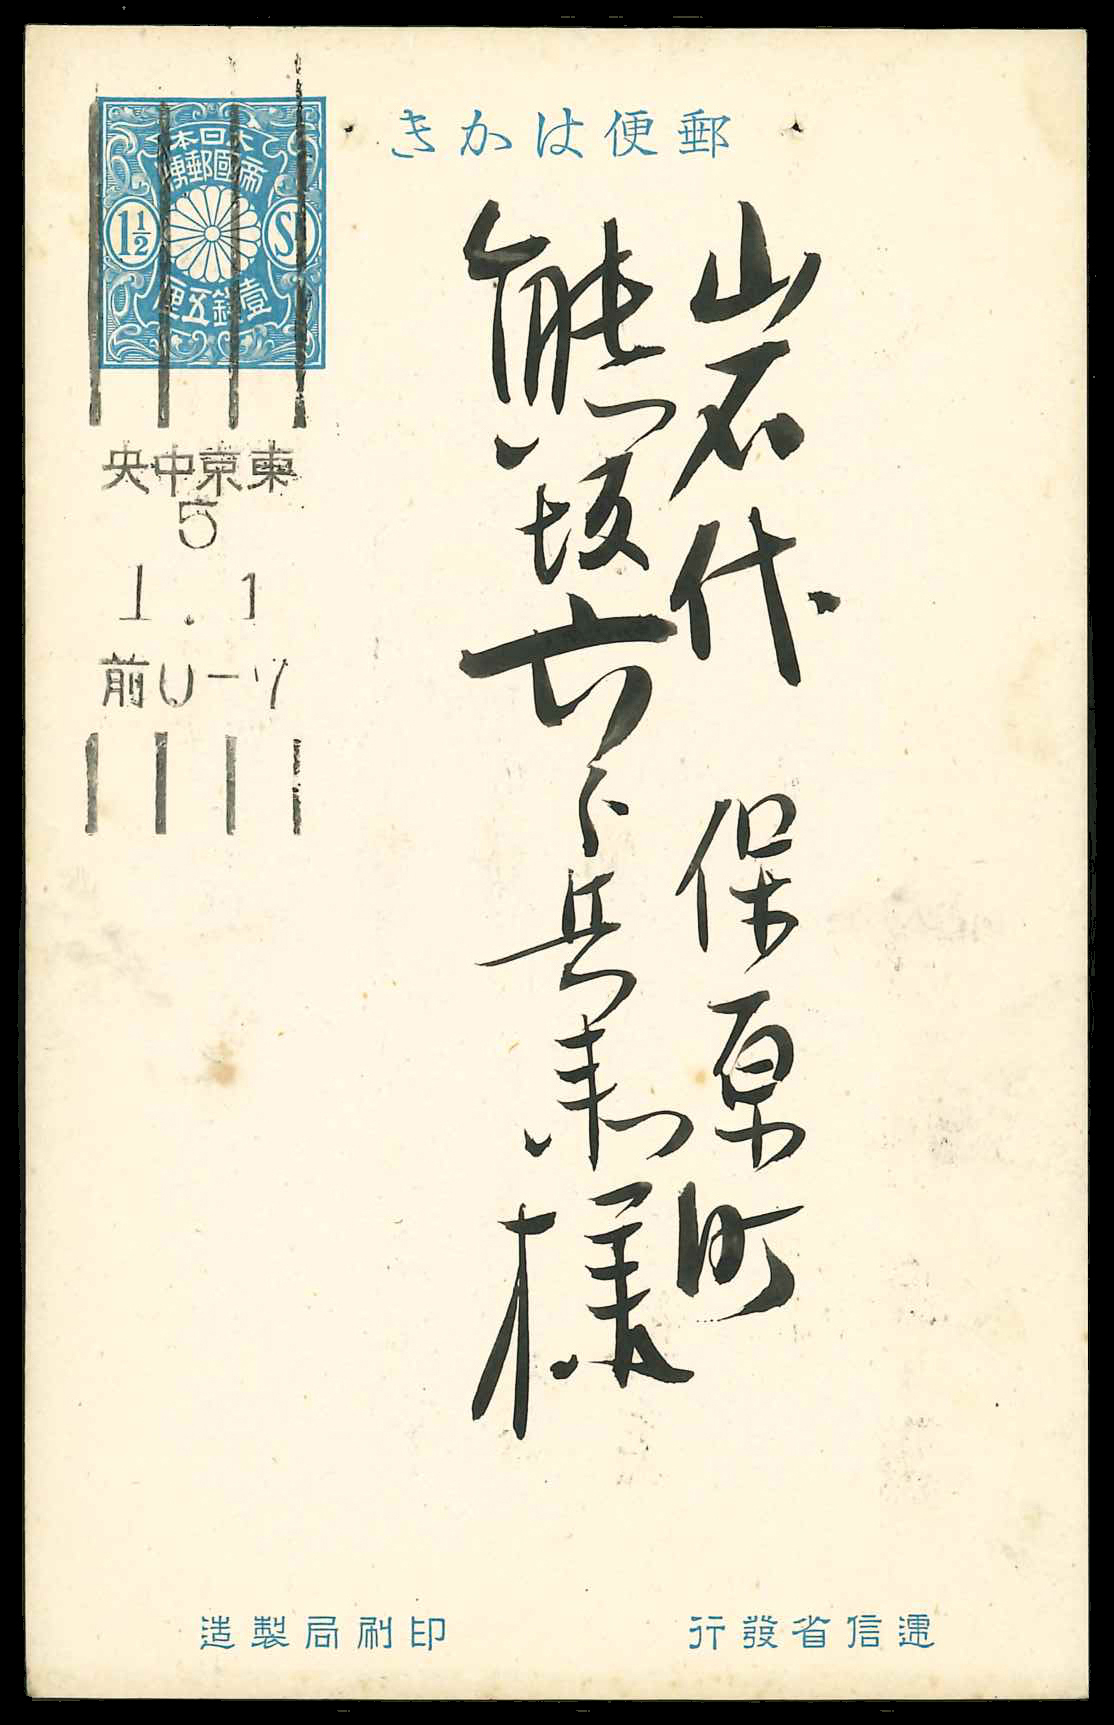 郵便はかき
大日本
帝國郵便
1½
Sⁿ
壹錢五厘
東京中央
5
1.1
前0-7
岩代 保原町
熊坂六郎兵衛様
逓信省發行
印刷局製造